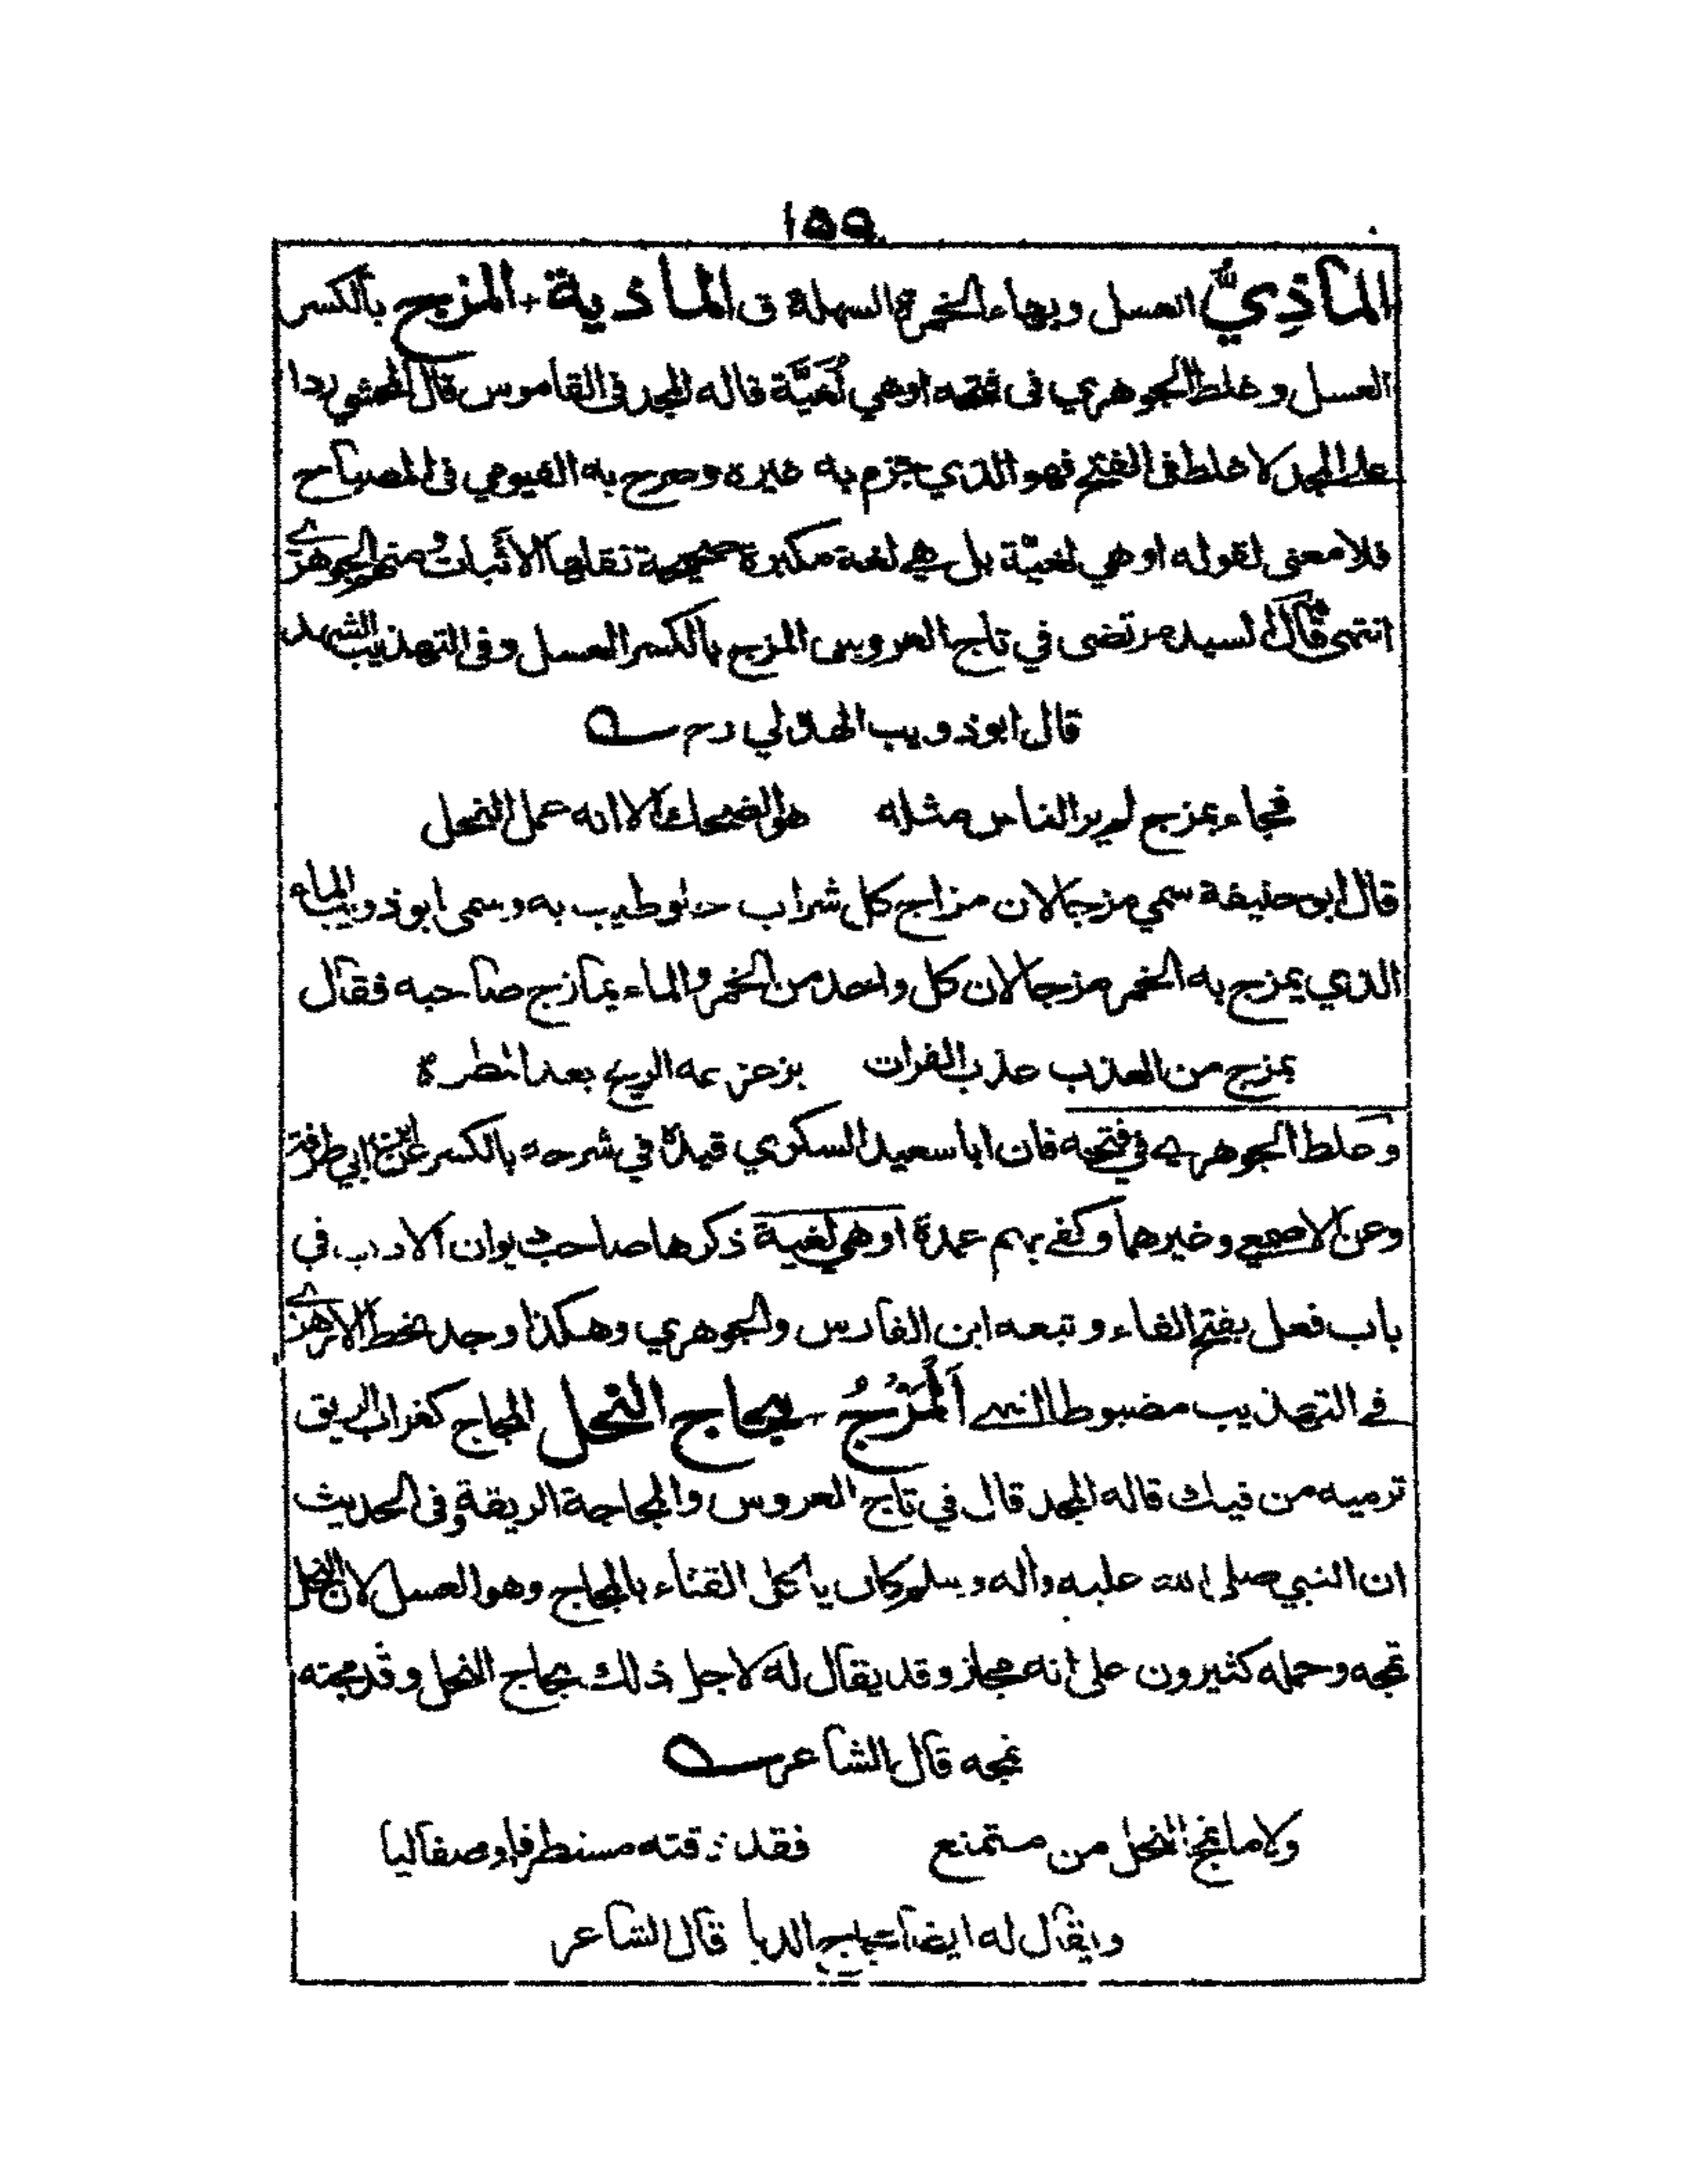 ١٥٩
الماذِيُّ العسل وبهاء الخمرة السهلة ق الماذية + المزج بالكسر
العسل وغلط الجوهري فى فتحه اوهي لُغَيَّة قاله المجد فى القاموس قال المحشي ردا
على المجد لا غلط فى الفتح فهو الذي جزم به غيره وصرح به الفيومي فى المصباح
فلا معنى لقوله اوهي لغيّة بل هي لغة مكبرة صحيحة نقلها الاثبات ومنهم الجوهري
انتهى قال السيد مرتضى في تاج العروس المزج بالكسر العسل وفى التهذيب الشهد
قال ابوذويب الهذلي رح
فجاء بمزج لم ير الناس مثله هو الضحك الا انه عمل النحل
قال ابو حنيفة سمي مزجا لان مزاج كل شراب حلو طيب به وسمى ابوذويب الماء
الذي يمزج به الخمر مزجا لان كل واحد من الخمر والماء يمازج صاحبه فقال
بمزج من العذب عذب الفرات يزعزعه الريح بعد المطرة
وغلط الجوهري في فتحه فان ابا سعيد السكري قيدة في شرحه بالكسر عن ابن ابي طرفة
وعن الاصمعي وغيرهما وكفى بهم عمدة اوهي لغية ذكرها صاحب ديوان الادب في
باب فعل بفتح الفاء وتبعه ابن الفارس والجوهري وهكذا وجد بخط الازهري
في التهذيب مضبوطا انتهى اَلْمَزْجُ - مجاج النحل المجاج كغراب الريق
ترميه من فيك قاله المجد قال في تاج العروس والمجاجة الريقة وفى الحديث
ان النبي صلى الله عليه وأله وسلم كان يأكل القثاء بالمجاج وهو العسل لان النحل
تمجه وحمله كثيرون على انه مجاز وقد يقال له لاجل ذلك مجاج النحل وقد مجته
تمجه قال الشاعر
ولا ما تمج النحل من متمنع فقد ذقته مستطرفا وصفا ليا
ويقال له ايضا مجاج الدبا قال الشاعر